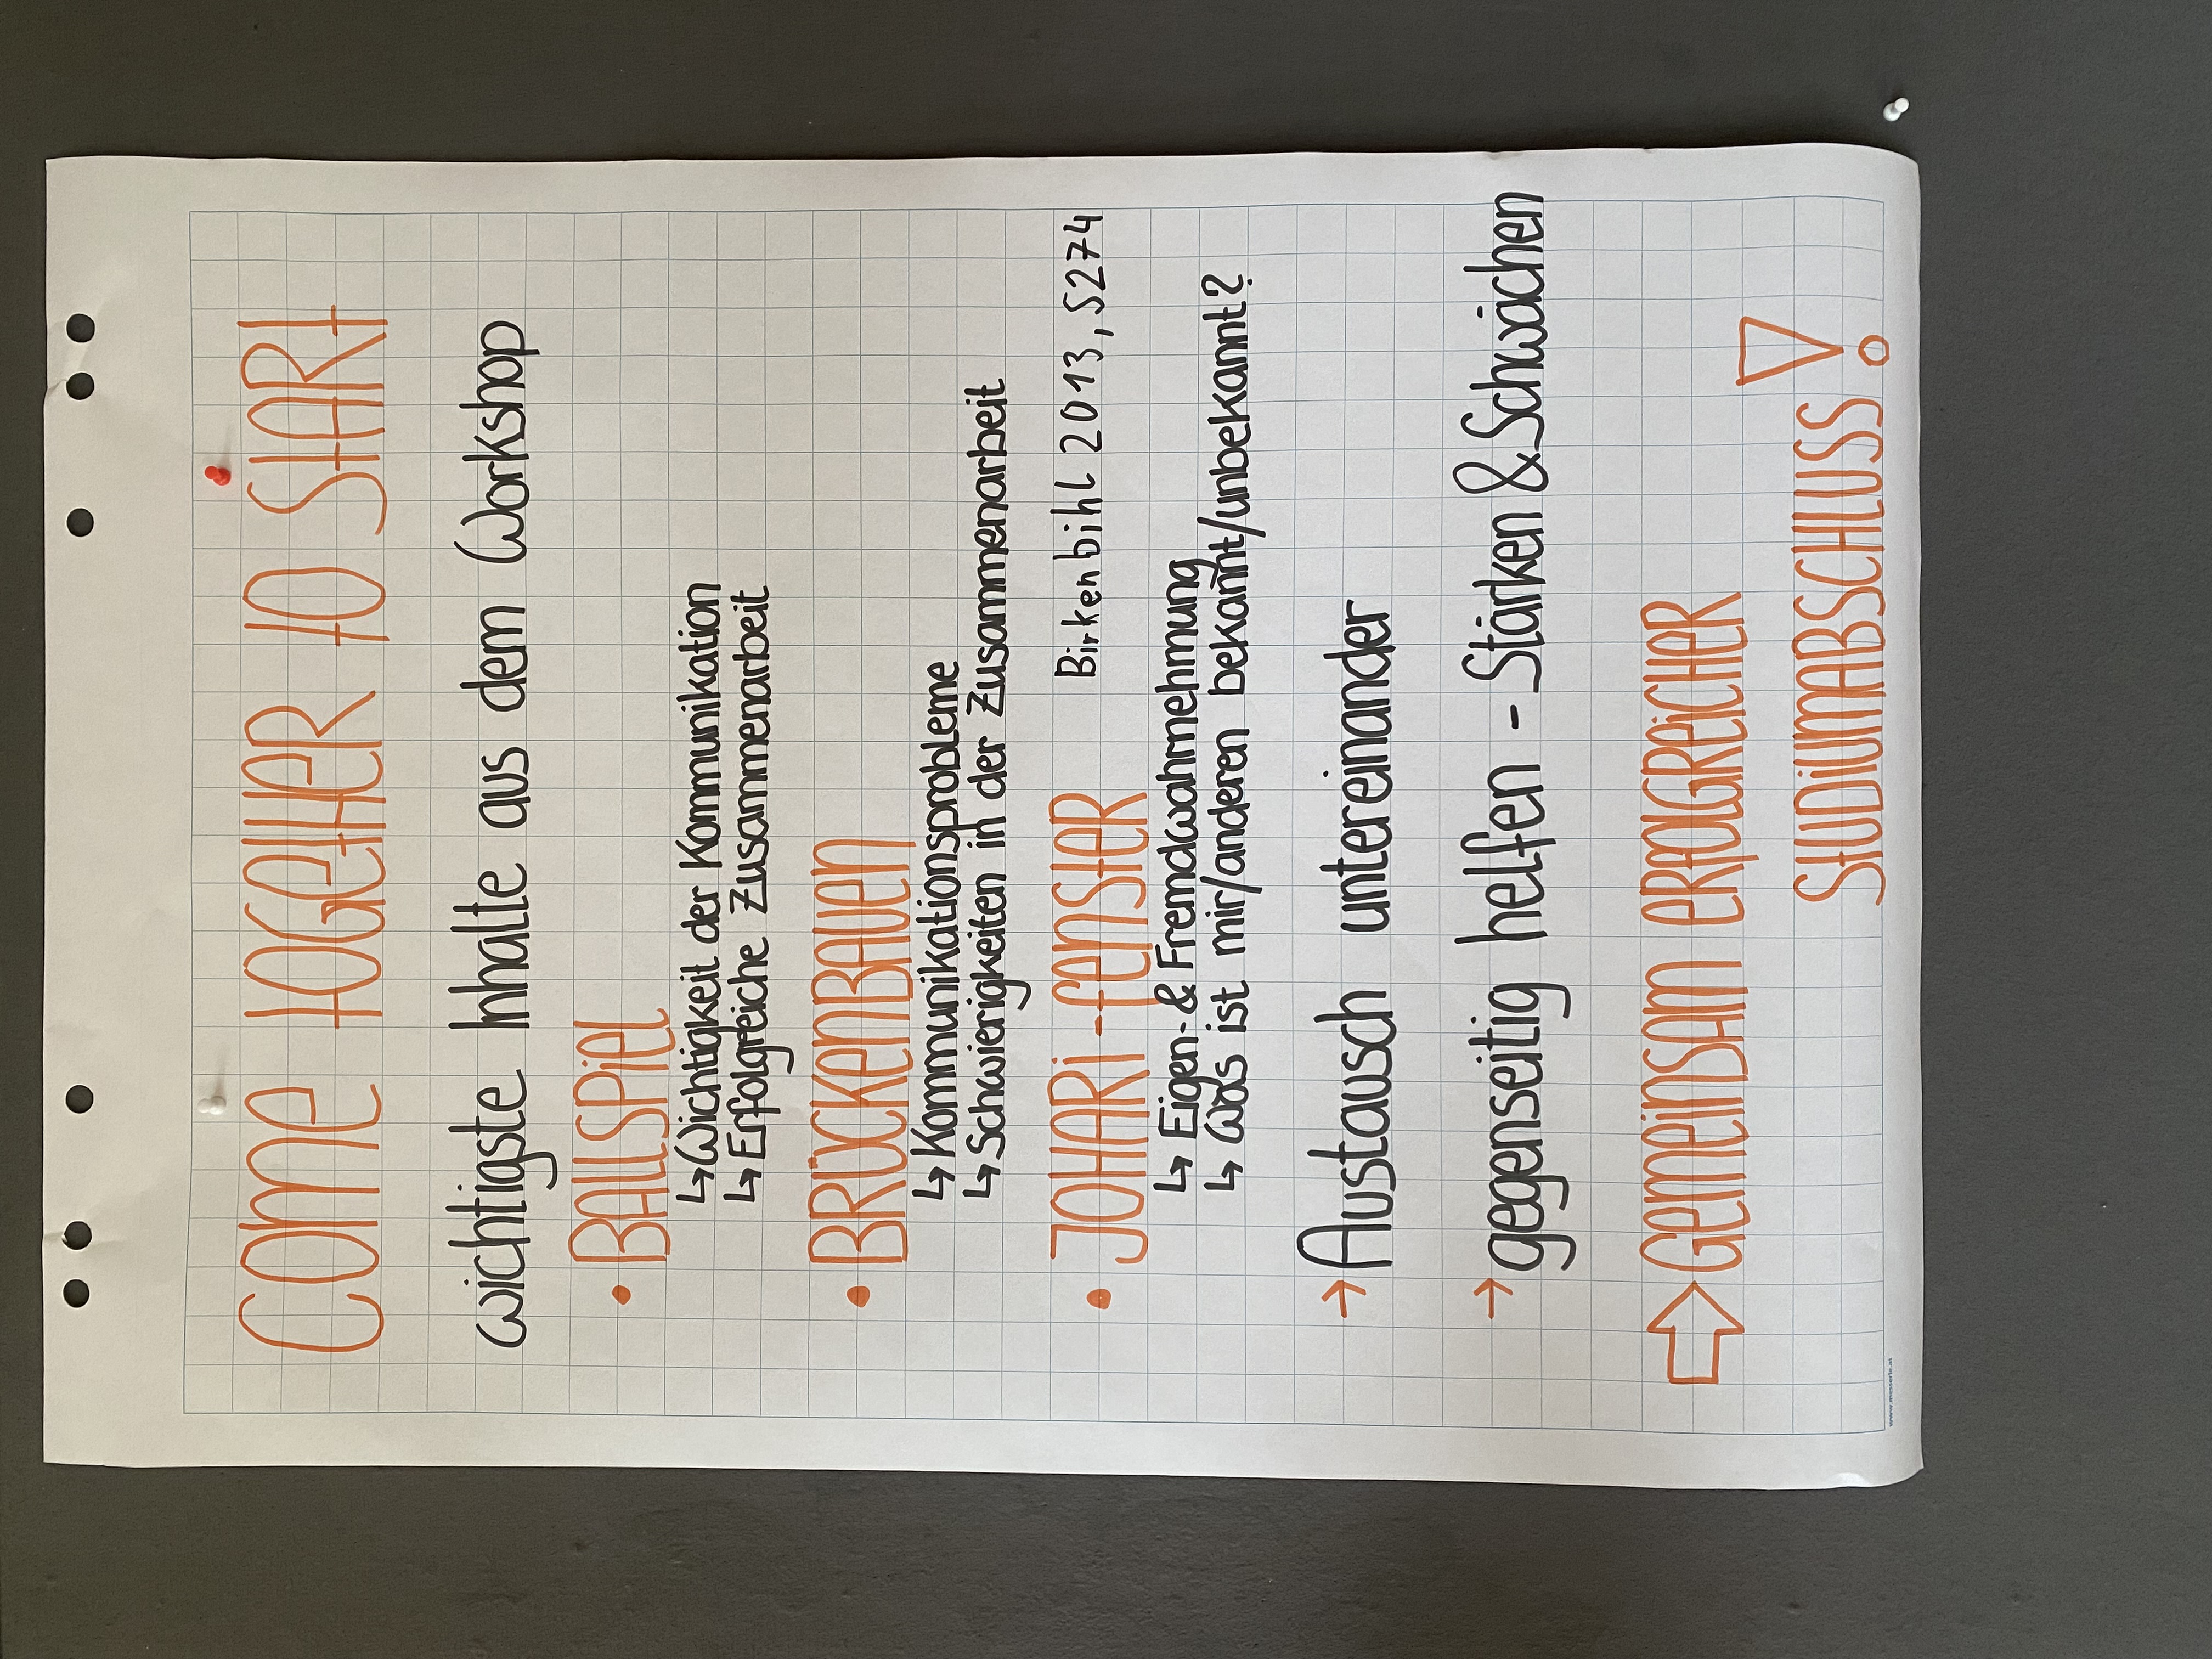 COME TOGETHER TO START
wichtigste Inhalte aus dem Workshop
• BALLSPIEL
↳ Wichtigkeit der Kommunikation
↳ Erfolgreiche Zusammenarbeit
• BRÜCKENBAUEN
↳ Kommunikationsprobleme
↳ Schwierigkeiten in der Zusammenarbeit
• JOHARI-FENSTER Birkenbihl 2013, S274
↳ Eigen- & Fremdwahrnehmung
↳ Was ist mir/anderen bekannt/unbekannt?
→ Austausch untereinander
→ gegenseitig helfen - Stärken & Schwächen
⇒ GEMEINSAM ERFOLGREICHER
STUDIUMABSCHLUSS!